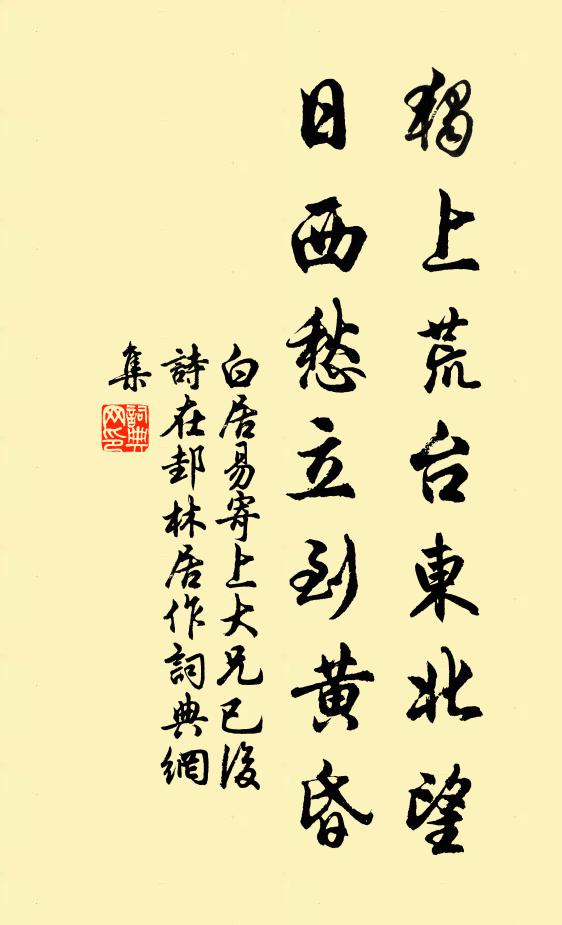 獨上荒台東北望
日西愁立到黃昏
白居易寄上大兄已後
詩在邽林居作詞典網
集
詞典
网印